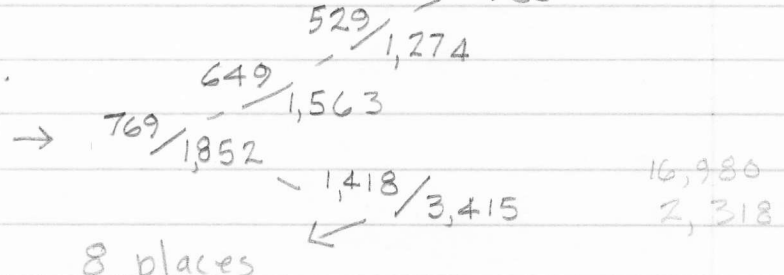 529/1,274
649/1,563
→ 769/1,852
1,418/3,415
16,980
2,318
8 places